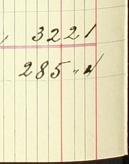 3221
285 " 4